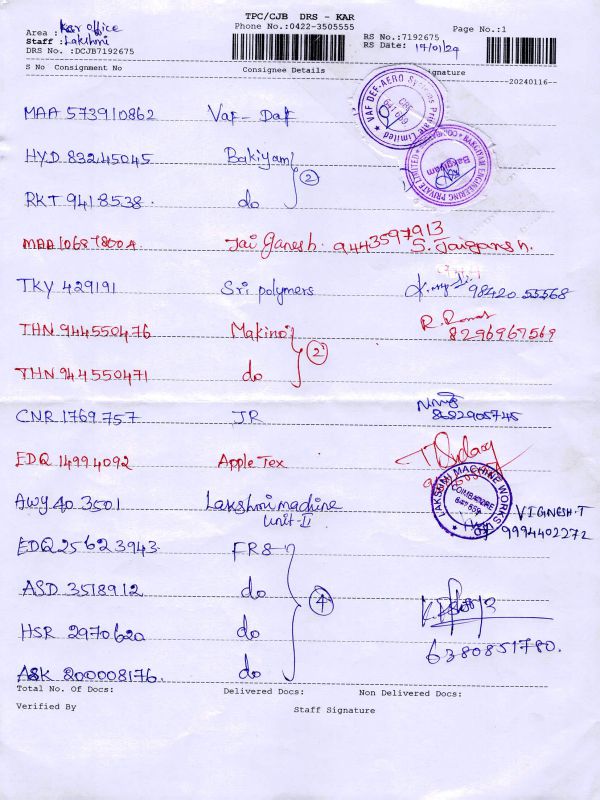 TPC/CJB DRS - KAR
Phone No.:0422-3505555
Page No.:1
Area : Kar office
Staff : Lakshmi
DRS No. :DCJB7192675
RS No.:7192675
RS Date: 17/01/24
S No Consignment No Consignee Details Signature
--20240116--
MAA 573910862 Vaf - Daf
VAF DEF-AERO Systems Private Limited
CBE
641 659
HYD 83245045 Bakiyam
BAKGIYAM ENGINEERING PRIVATE LIMITED
2
RKT 9418538 do
MAA 106878004 Jai Ganesh. 9443597913 S. Jaiganesh.
TKY 429191 Sri polymers 98420 55568
THN 944550476 Makino R.
8296967569
2
THN 944550471 do
CNR 1769757 JR
8682905745
EDQ 14994092 Apple Tex
AWY 403501 Lakshmi machine
unit-II
LAKSHMI MACHINE WORKS
COIMBATORE
641 659
VIGNESH.T
9994402272
EDQ 25623943 FR8
ASD 3518912 do
4
HSR 2970620 do
6380851780.
ASK 200008176. do
Total No. Of Docs: Delivered Docs: Non Delivered Docs:
Verified By Staff Signature